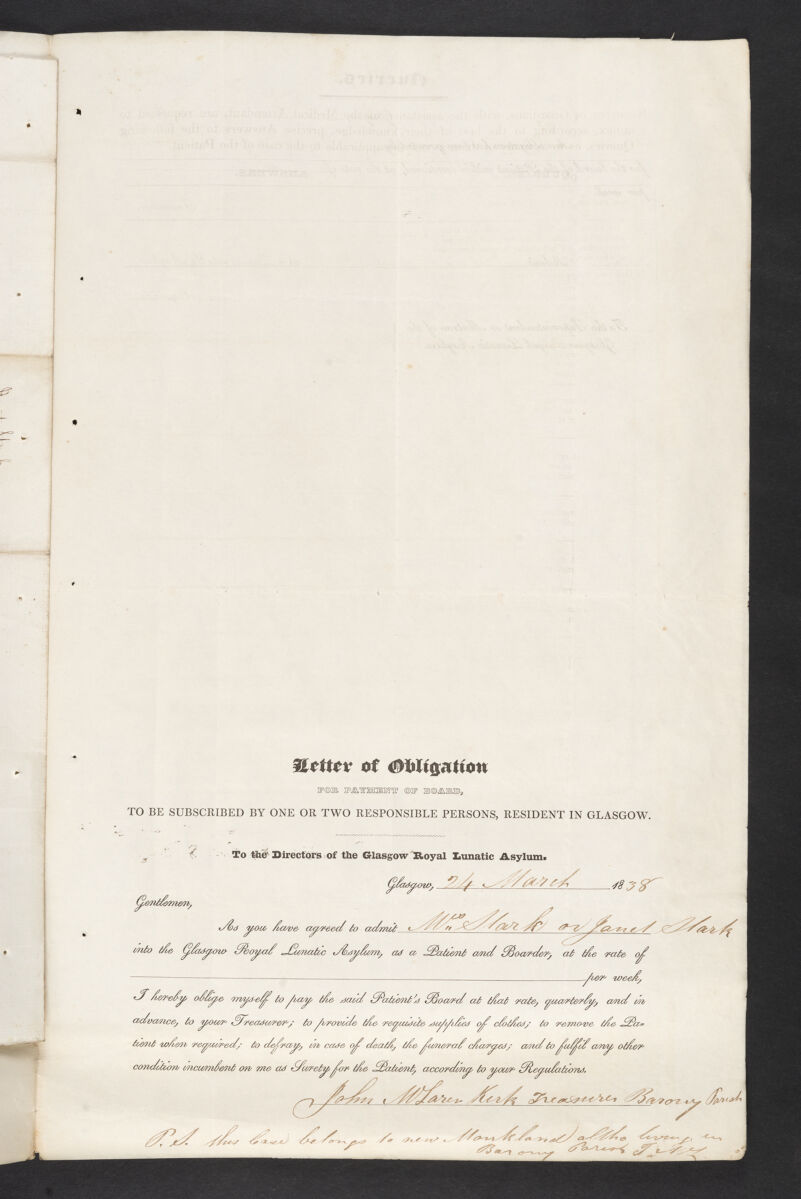 Letter of Obligation
FOR PAYMENT OF BOARD,
TO BE SUBSCRIBED BY ONE OR TWO RESPONSIBLE PERSONS, RESIDENT IN GLASGOW.
To the Directors of the Glasgow Royal Lunatic Asylum.
Glasgow, 24 March 1838
Gentlemen,
As you have agreed to admit Mrs Stark or Janet Stark
into the Glasgow Royal Lunatic Asylum, as a Patient and Boarder, at the rate of
per week,
I hereby oblige myself to pay the said Patient's Board at that rate, quarterly, and in
advance, to your Treasurer; to provide the requisite supplies of clothes; to remove the Pa-
tient when required; to defray, in case of death, the funeral charges; and to fulfil any other
condition incumbent on me as Surety for the Patient, according to your Regulations.
John McLaren Kirk Treasurer Barony Parish
P.S. this Case belongs to new Monkland altho living in
Barony Parish